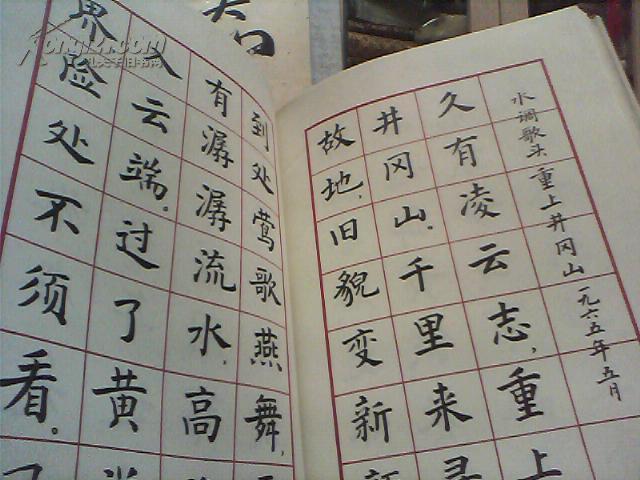 水调歌头 重上井冈山 一九六五年五月
久有凌云志,重上
井冈山。千里来寻
故地,旧貌变新
到处莺歌燕舞,
有潺潺流水,高
入云端。过了黄
界险处不须看。
孔夫子旧书网